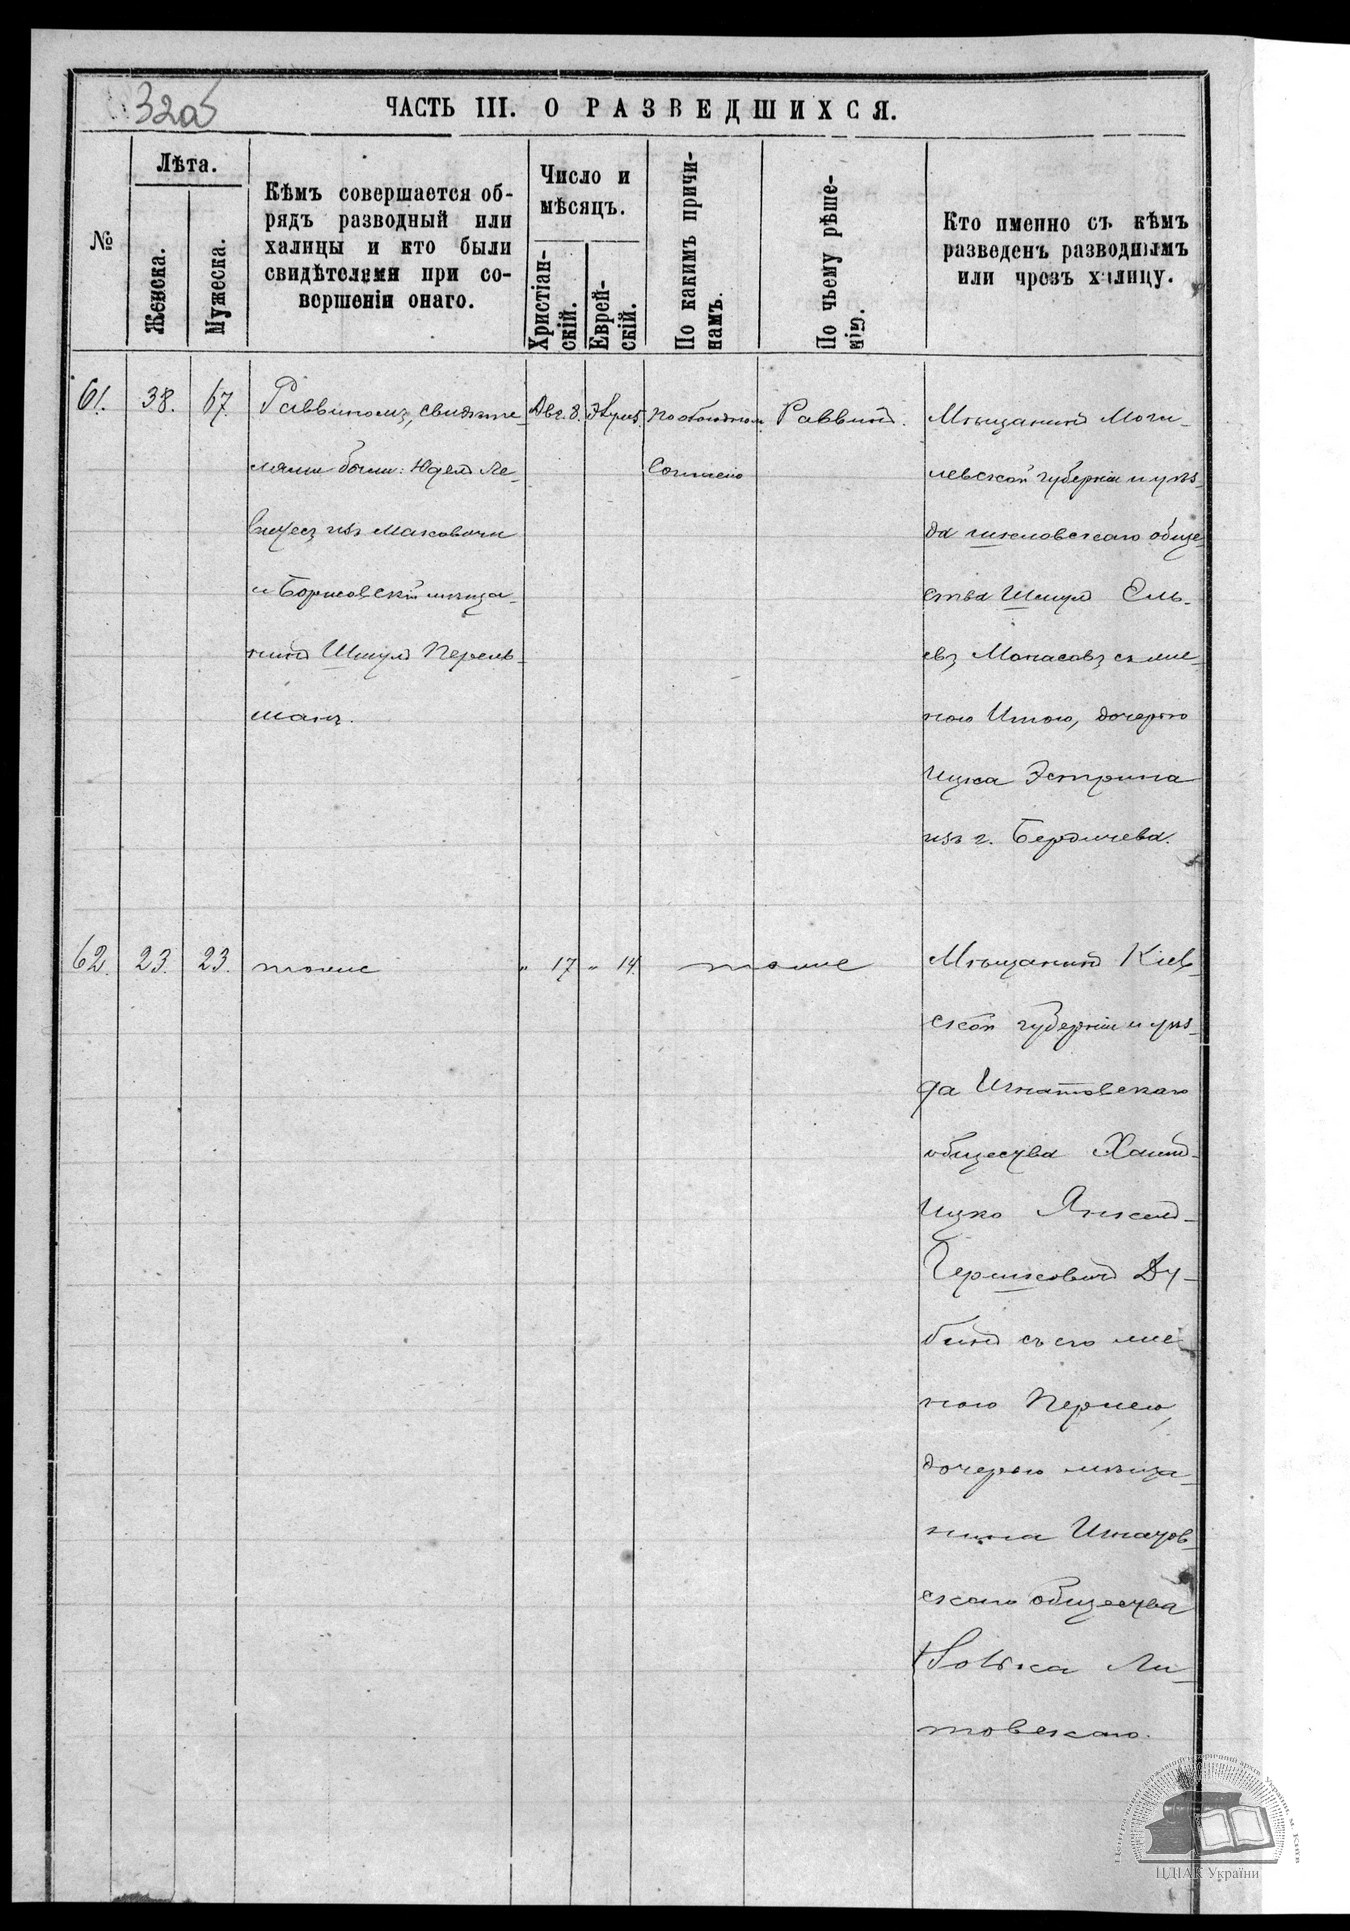 32об
ЧАСТЬ III. О РАЗВЕДШИХСЯ.
№
Лѣта.
Женска.
Мужеска.
Кѣмъ совершается об-
рядъ разводный или
халицы и кто были
свидѣтелями при со-
вершеніи онаго.
Число и
мѣсяцъ.
Христіан-
скій.
Еврей-
скій.
По какимъ причи-
намъ.
По чьему рѣше-
нію.
Кто именно съ кѣмъ
разведенъ разводнымъ
или чрезъ халицу.
61. 38. 67.
Раввиномъ, свидѣте-
лями были: Юдель Ле-
изъ Маковичи
и Борисовскій мѣща-
нинъ ШмульПерель-
манъ.
Авг. 8.
5.
По обоюдному
согласію
Раввинъ.
Мѣщанинъ Моги-
левской губерніи и уѣз-
да шкловскаго обще-
ства Шмуль Ель-
евъ Монасовъ съ же-
ною Итою, дочерью
Ицка Эстрина
изъ г. Бердичева.
62. 23. 23.
тоже
" 17
" 14.
тоже
Мѣщанинъ Кіев-
ской губерніи и уѣз-
да Игнатовскаго
общества Хаимъ-
Ицко Янкель-
Гершковичъ Ду-
бинъ съ его же-
ною Перлею,
дочерью мѣща-
нина Игнатов-
скаго общества
Ли-
товскаго.
Центральний державний історичний архів України, м. Київ
ЦДІАК України